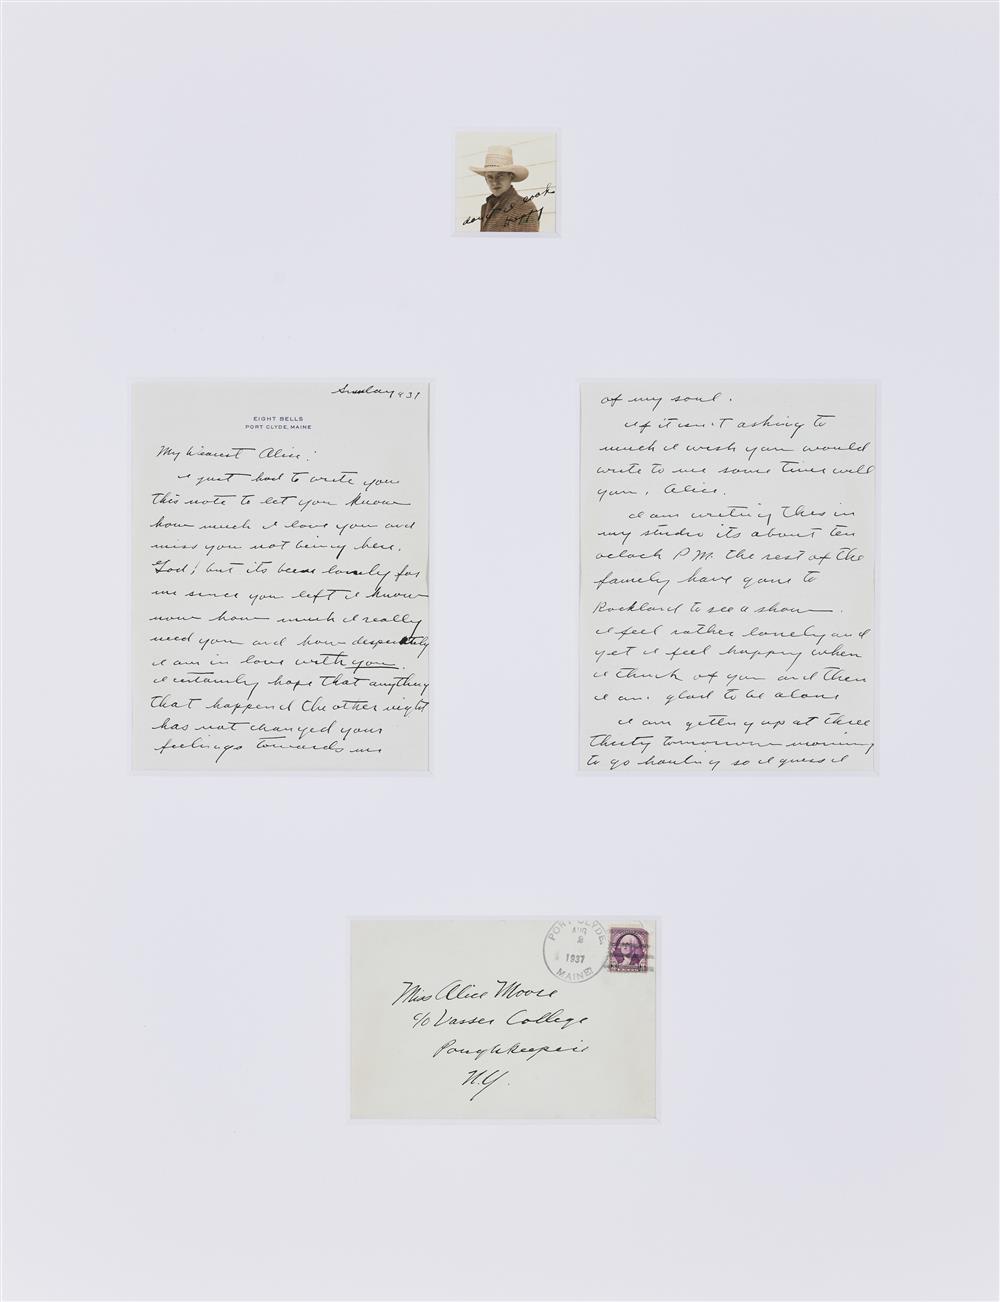 don't I look
happy
Sunday 1937
EIGHT BELLS
PORT CLYDE, MAINE
My Dearest Alice:
I just had to write you
this note to let you know
how much I love you and
miss you not being here.
God! but its been lonely for
me since you left I know
now how much I really
need you and how desperately
I am in love with you.
I certainly hope that anything
that happened the other night
has not changed your
feelings towards me
of my soul.
If it isn't asking to
much I wish you would
write to me some time will
you, Alice.
I am writing this in
my studio its about ten
oclock P.M. the rest of the
family have gone to
Rockland to see a show.
I feel rather lonely and
yet I feel happy when
I think of you and then
I am glad to be alone
I am getting up at three
thirty tomorrow morning
to go hauling so I guess I
PORT CLYDE,
AUG
2
1937
MAINE
Miss Alice Moore
c/o Vasser College
Poughkeepsie
N.Y.